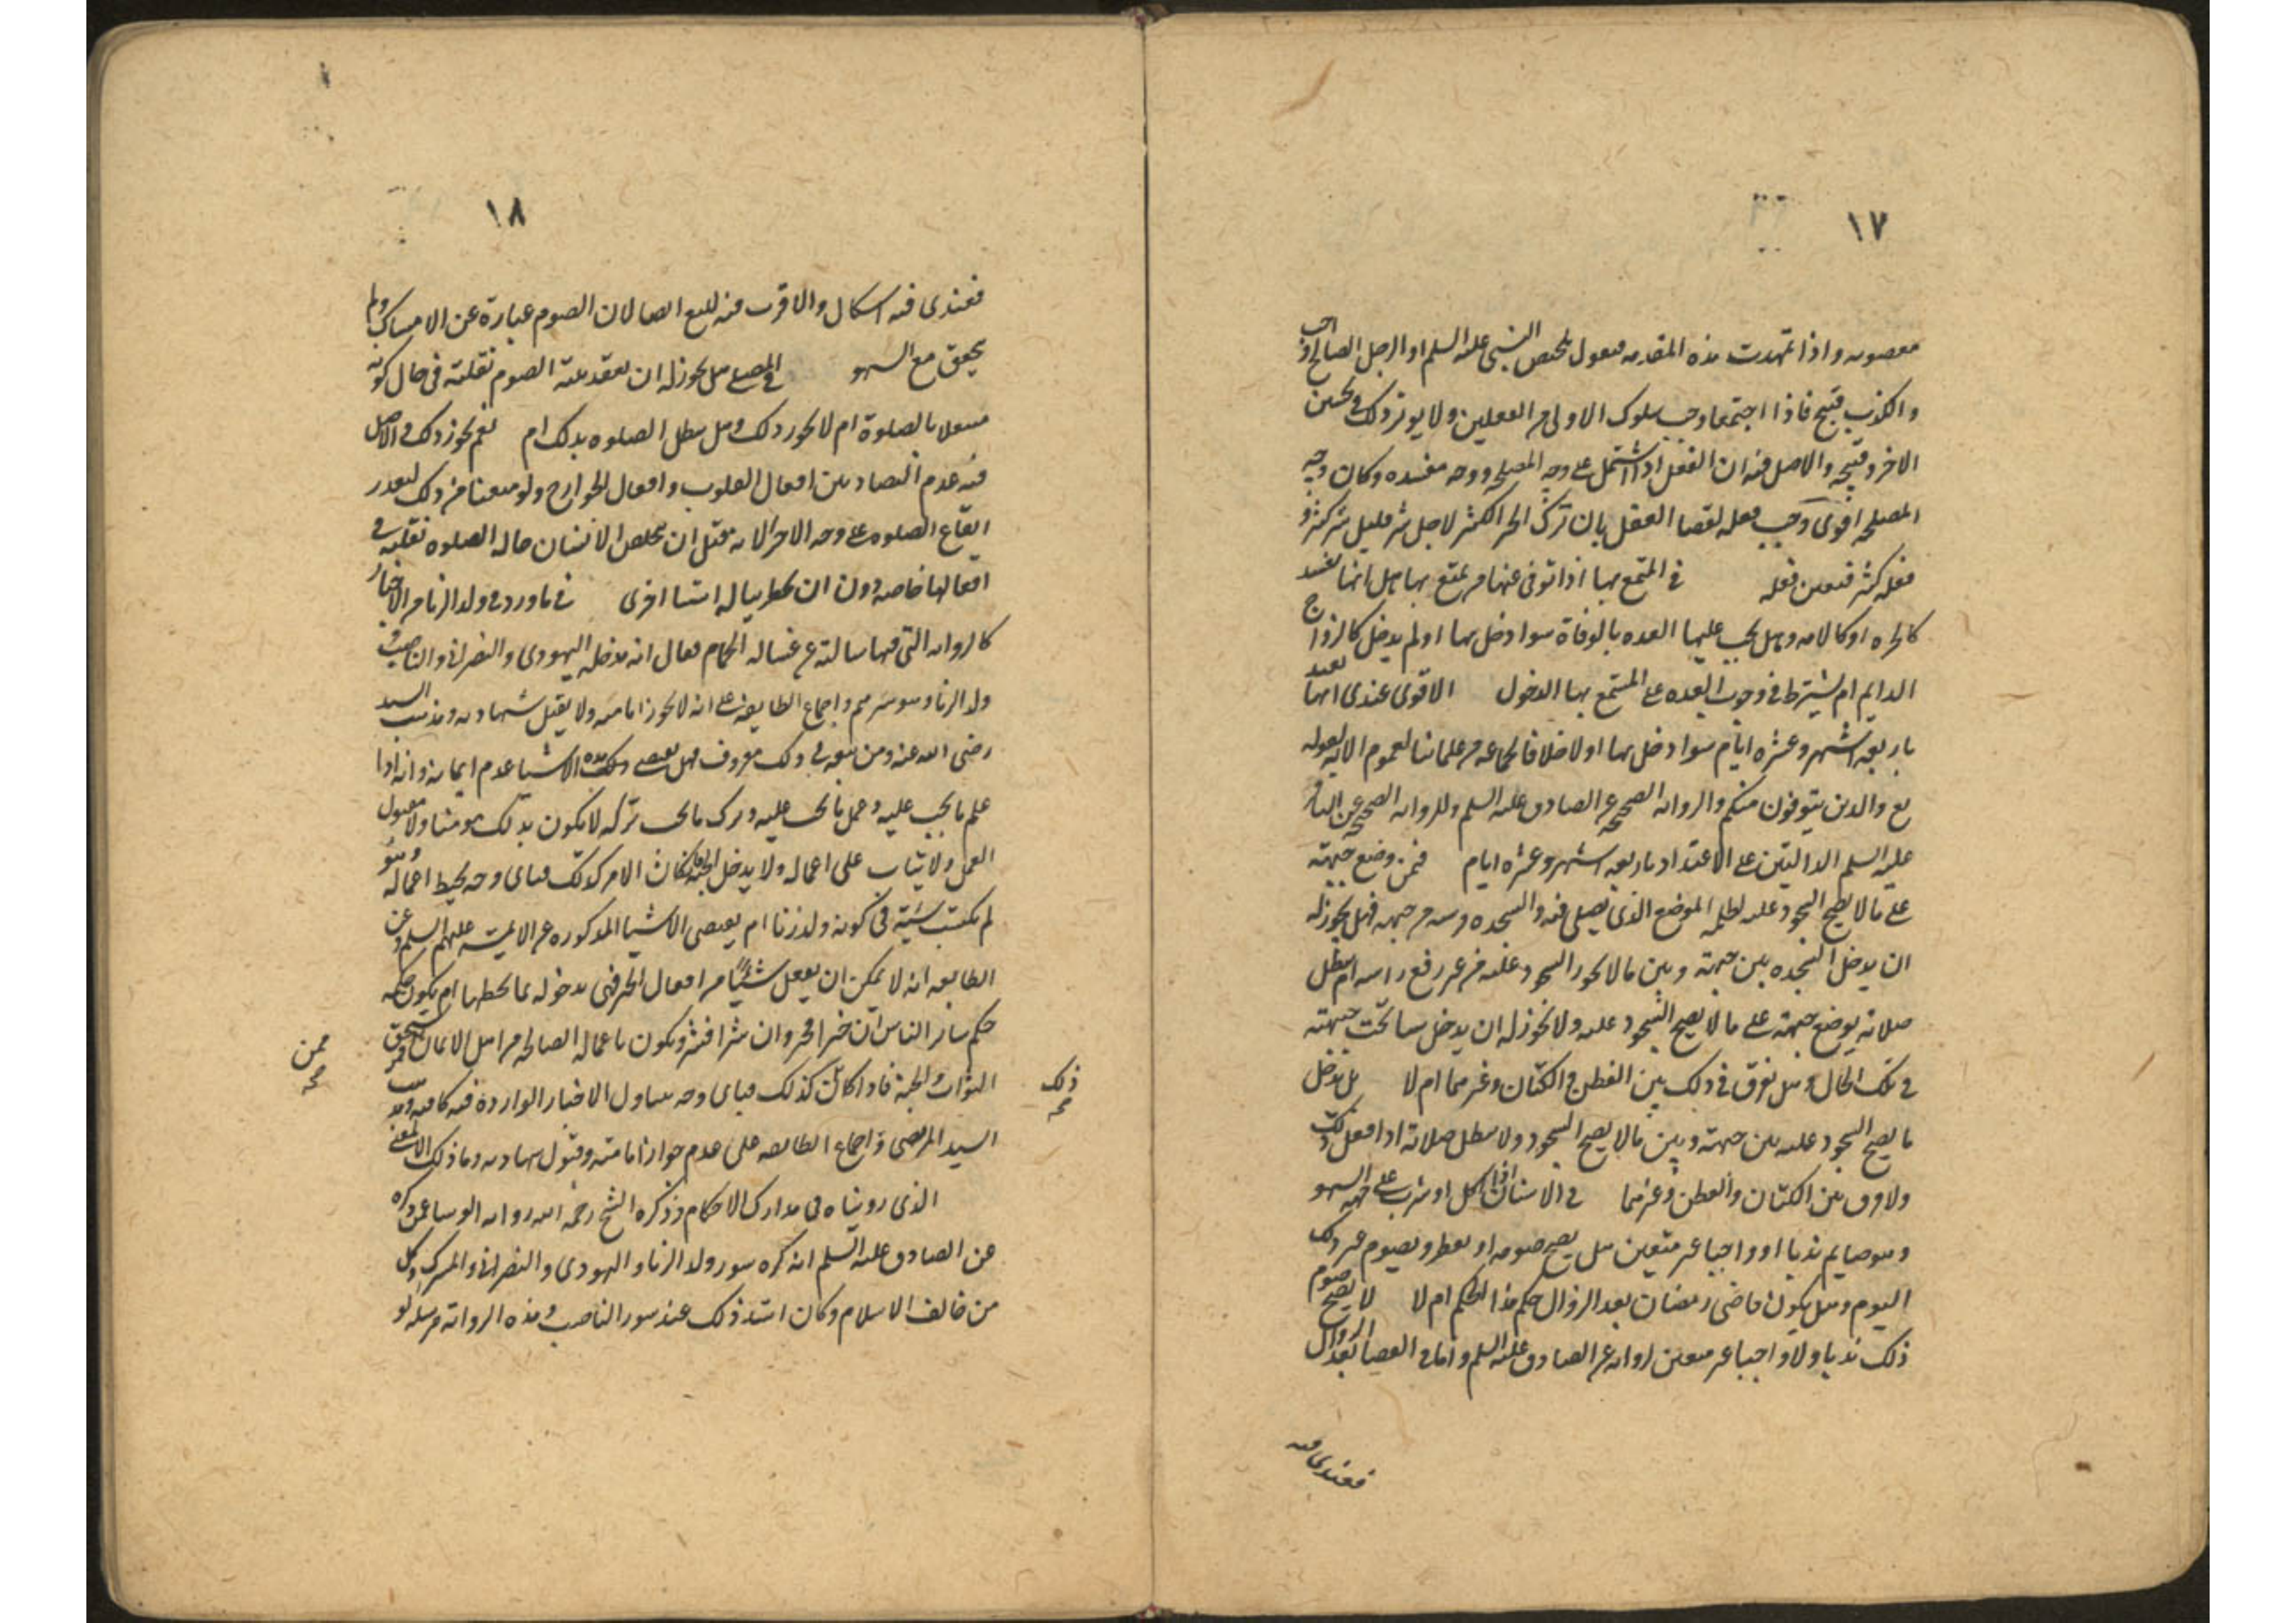 ١٧
معصومه واذا تمهدت هذه المقدمه فنقول تخليص النبى عليه السلم او الرجل الصالح واجب
والكذب قبيح فاذا اجتمعا وجب سلوك الاولى من الفعلين ولا يوثر ذلك فى تحسين
الاخر وقبيحه والاصل فيه ان الفعل اذا اشتمل على وجه المصلحه ووجه مفسده وكان وجه
المصلحه اقوى وجب فعله لقضا العقل بان ترك الخير الكثير لاجل شر قليل شر كثير و
فعله كثير فتعين فعله فى المتمتع بها اذا توفى عنها من تمتع بها هل انها تعتد
كالحره او كالامه وهل يجب عليها العده بالوفاة سوا دخل بها او لم يدخل كالزواج
الدايم ام يشترط فى وجوب العده على المتمتع بها الدخول الاقوى عندى انها تعتد
باربعه اشهر وعشره ايام سوا دخل بها او لا خلافا لجماعه من علمائنا لعموم الايه لقوله
تع والذين يتوفون منكم والروايه الصحيحه عن الصادق عليه السلم وللروايه الصحيحه عن الباقر
عليه السلم الدالتين على الاعتداد باربعه اشهر وعشره ايام فمن وضع جبهته
على ما لا يصح السجود عليه لظلمه الموضع الذى يصلى فيه والسجده قريبه من جبهته فهل يجوز له
ان يدخل السجده بين جبهته وبين ما لا يجوز السجود عليه من غير رفع راسه ام تبطل
صلاته بوضع جبهته على ما لا يصح السجود عليه ولا يجوز له ان يدخل شيا تحت جبهته
فى تلك الحال وهل يفرق فى ذلك بين القطن والكتان وغيرهما ام لا بل يدخل
ما يصح السجود عليه بين جبهته وبين ما لا يصح السجود ولا تبطل صلاته اذا فعل ذلك
ولا فرق بين الكتان والقطن وغيرهما فى الانسان اذا اكل او شرب على جهه السهو
وهو صايم ندبا او واجبا غير متعين هل يصح صومه او يفطر ويصوم غير ذلك
اليوم وهل يكون قاضى رمضان بعد الزوال حكمه هذا الحكم ام لا لا يصح صوم
ذلك ندبا ولا واجبا غير معين لروايه عن الصادق عليه السلم واما فى القضا بعد الزوال
فعندى فيه
١٨
فعندى فيه اشكال والاقرب فيه المنع ايضا لان الصوم عبارة عن الامساك ولم
يتحقق مع السهو فى المصلى هل يجوز له ان يعقد بنية الصوم بقلبه فى حال كونه
مشغلا بالصلوة ام لا يجوز ذلك وهل تبطل الصلوه بذلك ام نعم يجوز ذلك والاصل
فيه عدم التضاد بين افعال القلوب وافعال الجوارح ولو منعنا من ذلك لتعذر
ايقاع الصلوه على وجه الاخر الا انه قيل ان يخلص الانسان حاله الصلوه بقلبه فى
افعالها خاصه دون ان يخطر بباله اشيا اخرى فى ما ورد فى ولد الزنا من الاخبار
كالروايه التى فيها سالته عن غساله الحمام فقال انه يدخله اليهودى والنصرانى والناصب و
ولد الزنا وهو شرهم واجماع الطايفه على انه لا يجوز امامته ولا يقبل شهادته ومذهب السيد
رضى الله عنه ومن تبعه فى ذلك معروف فهل يقتضى ذلك هذه الاشيا عدم ايمانه وانه اذا
علم ما يجب عليه وعمل ما يجب عليه وترك ما يجب تركه لا يكون بذلك مومنا ولا مقبول
العمل ولا يثاب على اعماله ولا يدخل الجنه فان كان الامر كذلك فباى وجه يحبط اعماله وهو
لم يكتسب سيئة فى كونه ولد زنا ام يقتضى الاشيا المذكوره عن الايمه عليهم السلم وعن
الطايفه انه لا يمكن ان يفعل شيئا من افعال الخير فى دخوله بما يحظها ام يكون حكمه
حكم ساير الناس ان خيرا فخير وان شرا فشر ويكون باعماله الصالحه من اهل الايمان ممن يستحق
الثواب والجنة فاذا كان كذلك فباى وجه يتناول الاخبار الوارده فيه كافيه ومذهب
السيد المرتضى واجماع الطايفه على عدم جواز امامته وقبول شهادته وما ذلك الا لمعنى
الذى رويناه فى مدارك الاحكام وذكره الشيخ رحمه الله روايه الوشا عمن ذكره
عن الصادق عليه السلم انه كره سور ولد الزنا واليهودى والنصرانى والمشرك وكل
من خالف الاسلام وكان اشد ذلك عنده سور الناصب وهذه الرواية مرسله ولو
ذلك
صح
ممن
صح